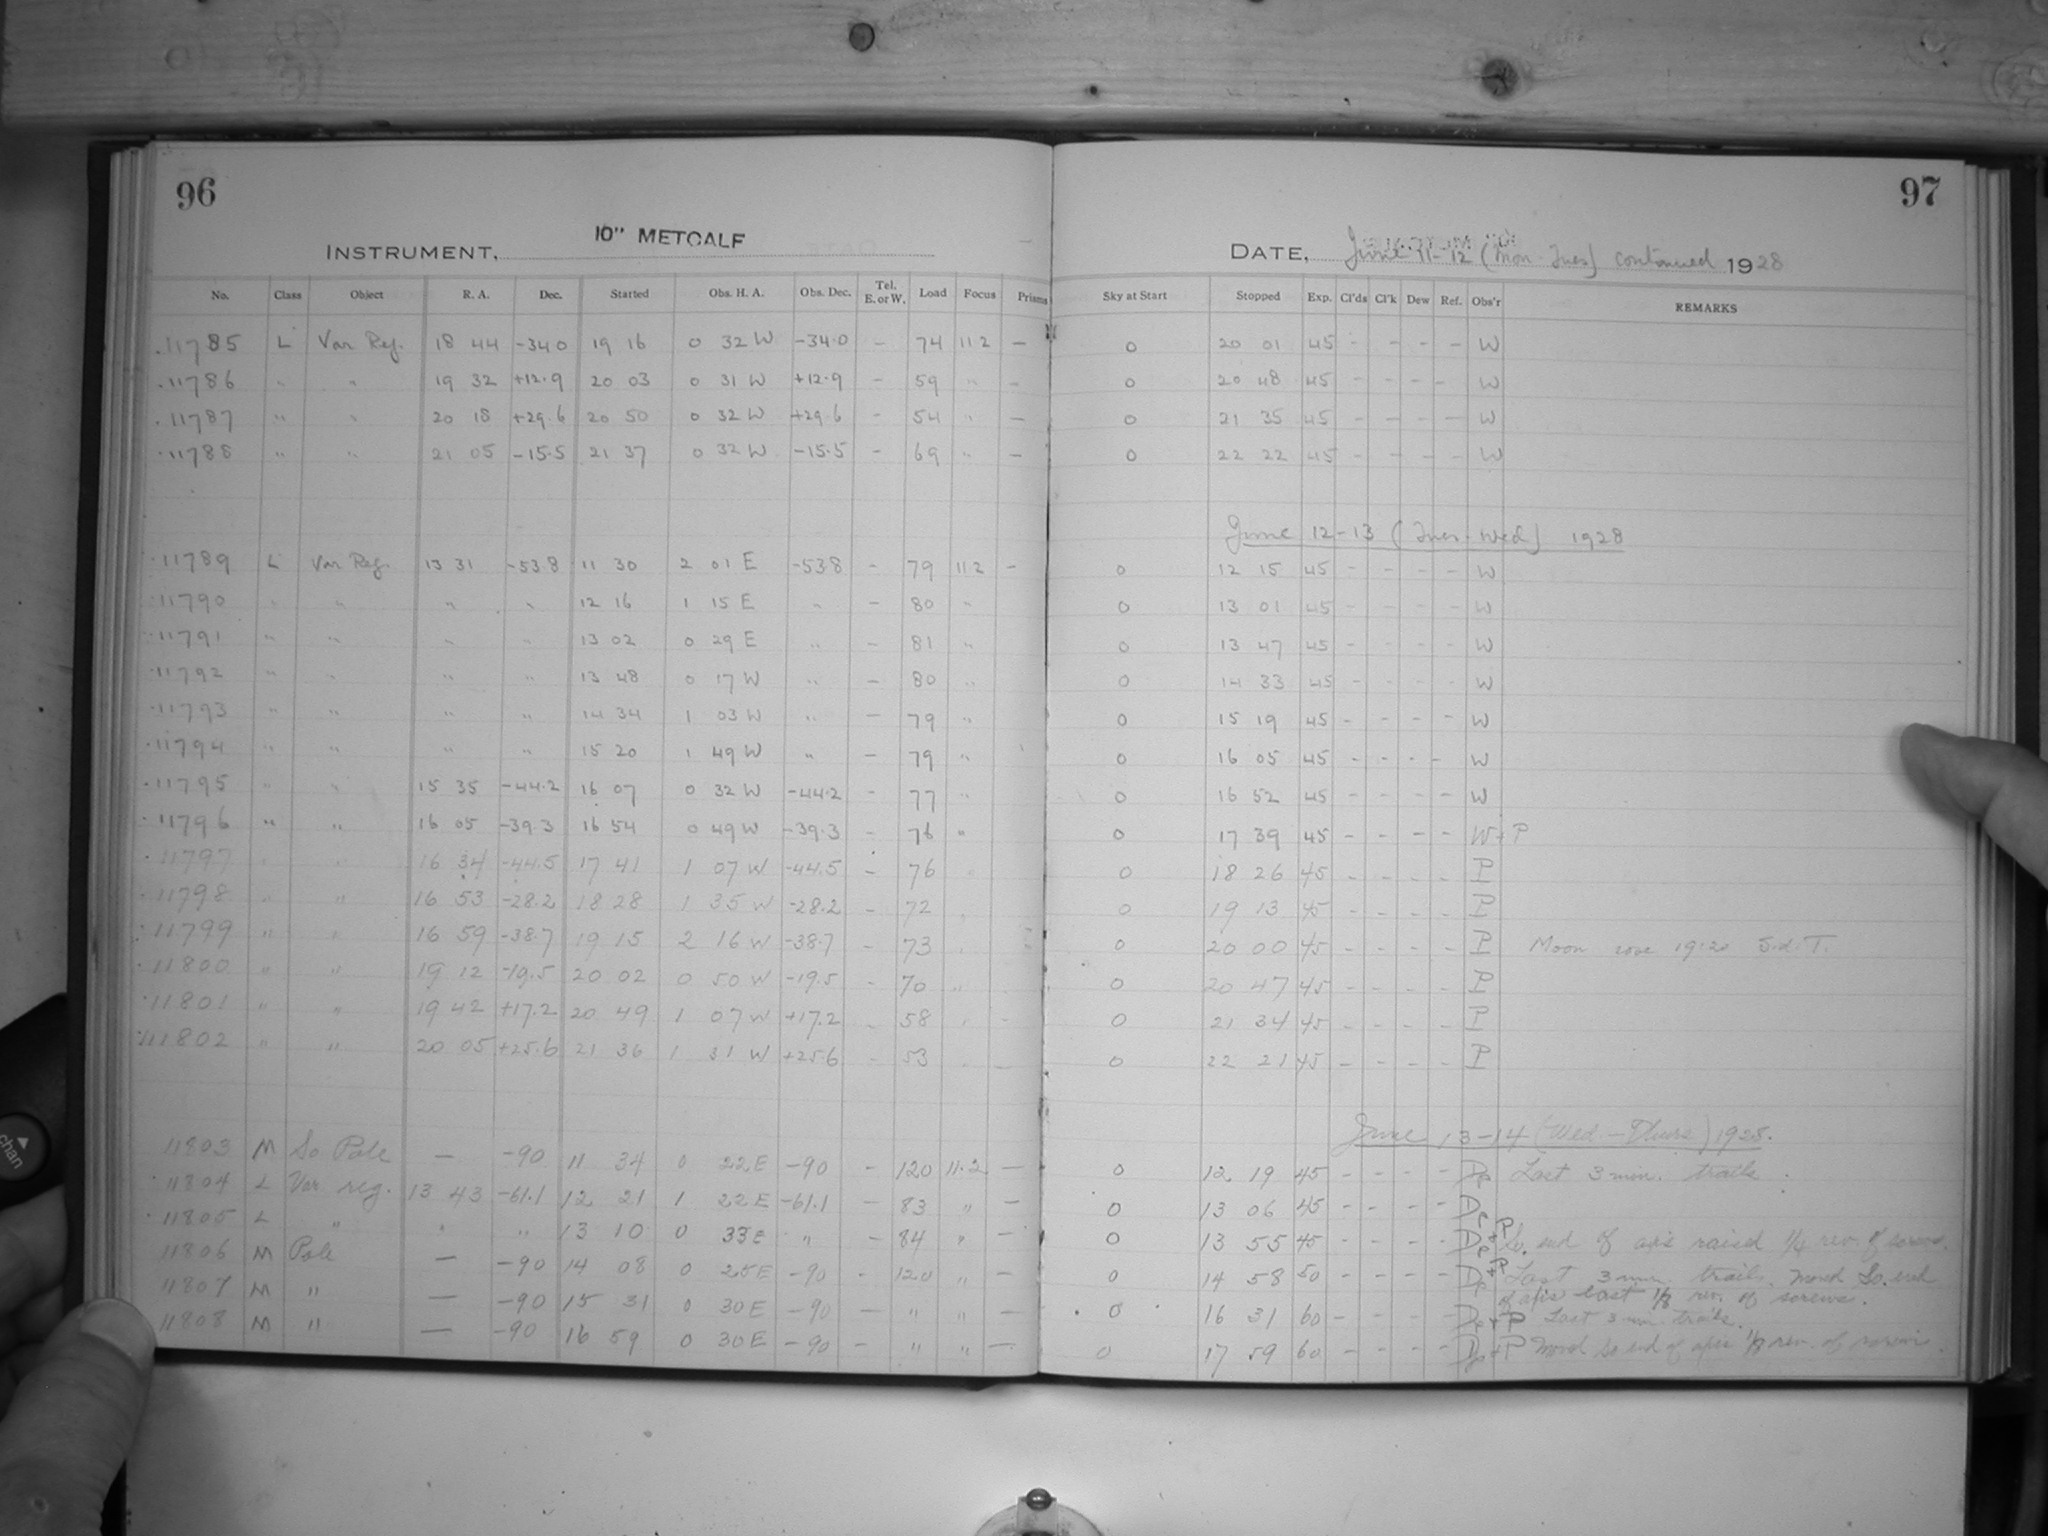 96
10" METCALF
INSTRUMENT,
No. Class Object R. A. Dec. Started Obs. H. A. Obs. Dec. Tel. E. or W. Load Focus Prisms
.11785 L Var Reg. 18 44 -34.0 19 16 0 32 W -34.0 - 74 11 2 -
.11786 " " 19 32 +12.9 20 03 0 31 W +12.9 - 59 " -
.11787 " " 20 18 +29.6 20 50 0 32 W +29.6 - 54 " -
.11788 " " 21 05 -15.5 21 37 0 32 W -15.5 - 69 " -
.11789 L Var Reg. 13 31 -53.8 11 30 2 01 E -53.8 - 79 11 2 -
.11790 " " " " 12 16 1 15 E " - 80 "
.11791 " " " " 13 02 0 29 E " - 81 "
.11792 " " " " 13 48 0 17 W " - 80 "
.11793 " " " " 14 34 1 03 W " - 79 "
.11794 " " " " 15 20 1 49 W " - 79 "
.11795 " " 15 35 -44.2 16 07 0 32 W -44.2 - 77 "
.11796 " " 16 05 -39.3 16 54 0 49 W -39.3 - 76 "
.11797 " " 16 34 -44.5 17 41 1 07 W -44.5 - 76 "
.11798 " " 16 53 -28.2 18 28 1 35 W -28.2 - 72 "
.11799 " " 16 59 -38.7 19 15 2 16 W -38.7 - 73 "
.11800 " " 19 12 -19.5 20 02 0 50 W -19.5 - 70 "
.11801 " " 19 42 +17.2 20 49 1 07 W +17.2 - 58 " -
.11802 " " 20 05 +25.6 21 36 1 31 W +25.6 - 53 " -
11803 M So Pole — -90 11 34 0 22 E -90 - 120 11.2 -
.11804 L Var. reg. 13 43 -61.1 12 21 1 22 E -61.1 - 83 " -
.11805 L " " " 13 10 0 33 E " - 84 " -
11806 M Pole — -90 14 08 0 25 E -90 - 120 " -
11807 M " — -90 15 31 0 30 E -90 - " " -
11808 M " — -90 16 59 0 30 E -90 - " " -
97
DATE, June 11-12 (Mon-Tues) continued 1928
Sky at Start Stopped Exp. Cl'ds Cl'k Dew Ref. Obs'r REMARKS
0 20 01 45 - - - - W
0 20 48 45 - - - - W
0 21 35 45 - - - - W
0 22 22 45 - - - - W
June 12-13 (Tues-Wed) 1928
0 12 15 45 - - - - W
0 13 01 45 - - - - W
0 13 47 45 - - - - W
0 14 33 45 - - - - W
0 15 19 45 - - - - W
0 16 05 45 - - - - W
0 16 52 45 - - - - W
0 17 39 45 - - - - W+P
0 18 26 45 - - - - P
0 19 13 45 - - - - P
0 20 00 45 - - - - P Moon rose 19.20 Sid. T.
0 20 47 45 - - - - P
0 21 34 45 - - - - P
0 22 21 45 - - - - P
June 13-14 (Wed.-Thurs) 1928.
0 12 19 45 - - - - Last 3 min. trails.
0 13 06 45 - - - -
0 13 55 45 - - - - So. end of axis raised 1/4 rev. of screws.
0 14 58 50 - - - - Last 3 min trails. Moved So. end
of axis east 1/8 rev. of screws.
0 16 31 60 - - - - Last 3 min. trails.
0 17 59 60 - - - - Moved So end of axis 1/8 rev. of screws.